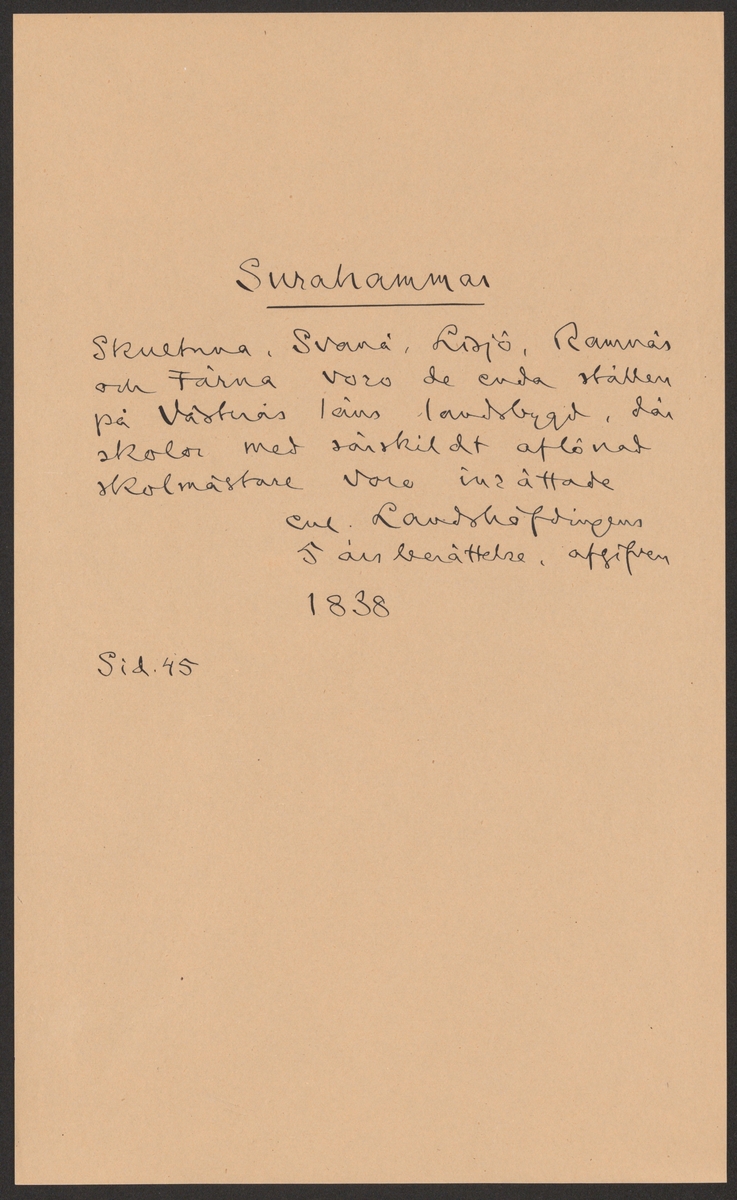 Surahammar
Skultuna, Svanå, Lisjö, Ramnäs
och Färna voro de enda ställen
på Västerås läns landsbygd, där
skolor med särskildt aflönad
skolmästare vore inrättade
enl. Landshöfdingens
5 års berättelse, afgifven
1838
Sid. 45